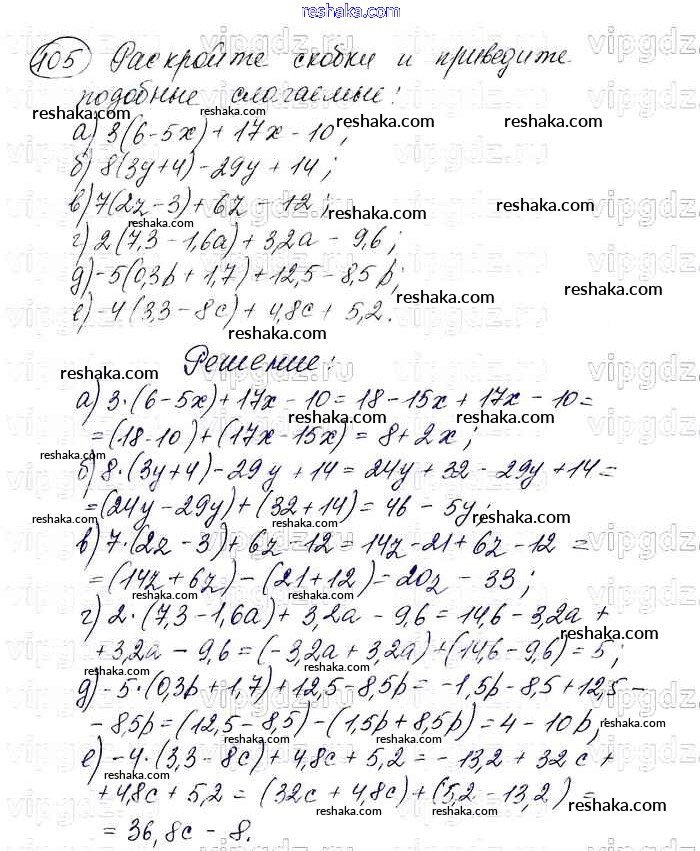 reshaka.com
105 Раскройте скобки и приведите
подобные слагаемые:
а) 3(6-5x)+17x-10;
б) 8(3y+4)-29y+14;
в) 7(2z-3)+6z-12;
г) 2(7,3-1,6a)+3,2a-9,6;
д) -5(0,3p+1,7)+12,5-8,5p;
е) -4(3,3-8c)+4,8c+5,2.
Решение:
а) 3·(6-5x)+17x-10=18-15x+17x-10=
=(18-10)+(17x-15x)=8+2x;
б) 8·(3y+4)-29y+14=24y+32-29y+14=
=(24y-29y)+(32+14)=46-5y;
в) 7·(2z-3)+6z-12=14z-21+6z-12=
=(14z+6z)-(21+12)=20z-33;
г) 2·(7,3-1,6a)+3,2a-9,6=14,6-3,2a+
+3,2a-9,6=(-3,2a+3,2a)+(14,6-9,6)=5;
д) -5·(0,3p+1,7)+12,5-8,5p=-1,5p-8,5+12,5-
-8,5p=(12,5-8,5)-(1,5p+8,5p)=4-10p;
е) -4·(3,3-8c)+4,8c+5,2=-13,2+32c+
+4,8c+5,2=(32c+4,8c)+(5,2-13,2)=
=36,8c-8.